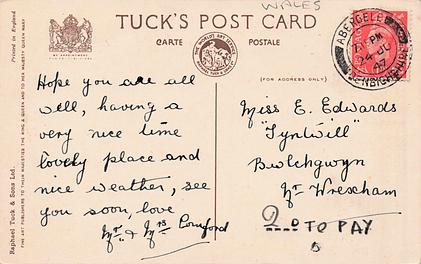 WALES
TUCK'S POST CARD
CARTE POSTALE
BY APPOINTMENT
(FOR ADDRESS ONLY)
Printed in England
Raphael Tuck & Sons Ltd.
FINE ART PUBLISHERS TO THEIR MAJESTIES THE KING & QUEEN AND TO HER MAJESTY QUEEN MARY
ABERGELE
PM
24 JU
47
DENBIGHSHIRE
Hope you are all
well, having a
very nice time
lovely place and
nice weather, see
you soon, love
Mr & Mrs
Miss E. Edwards
Bwlchgwyn
Nr Wrexham
TO PAY